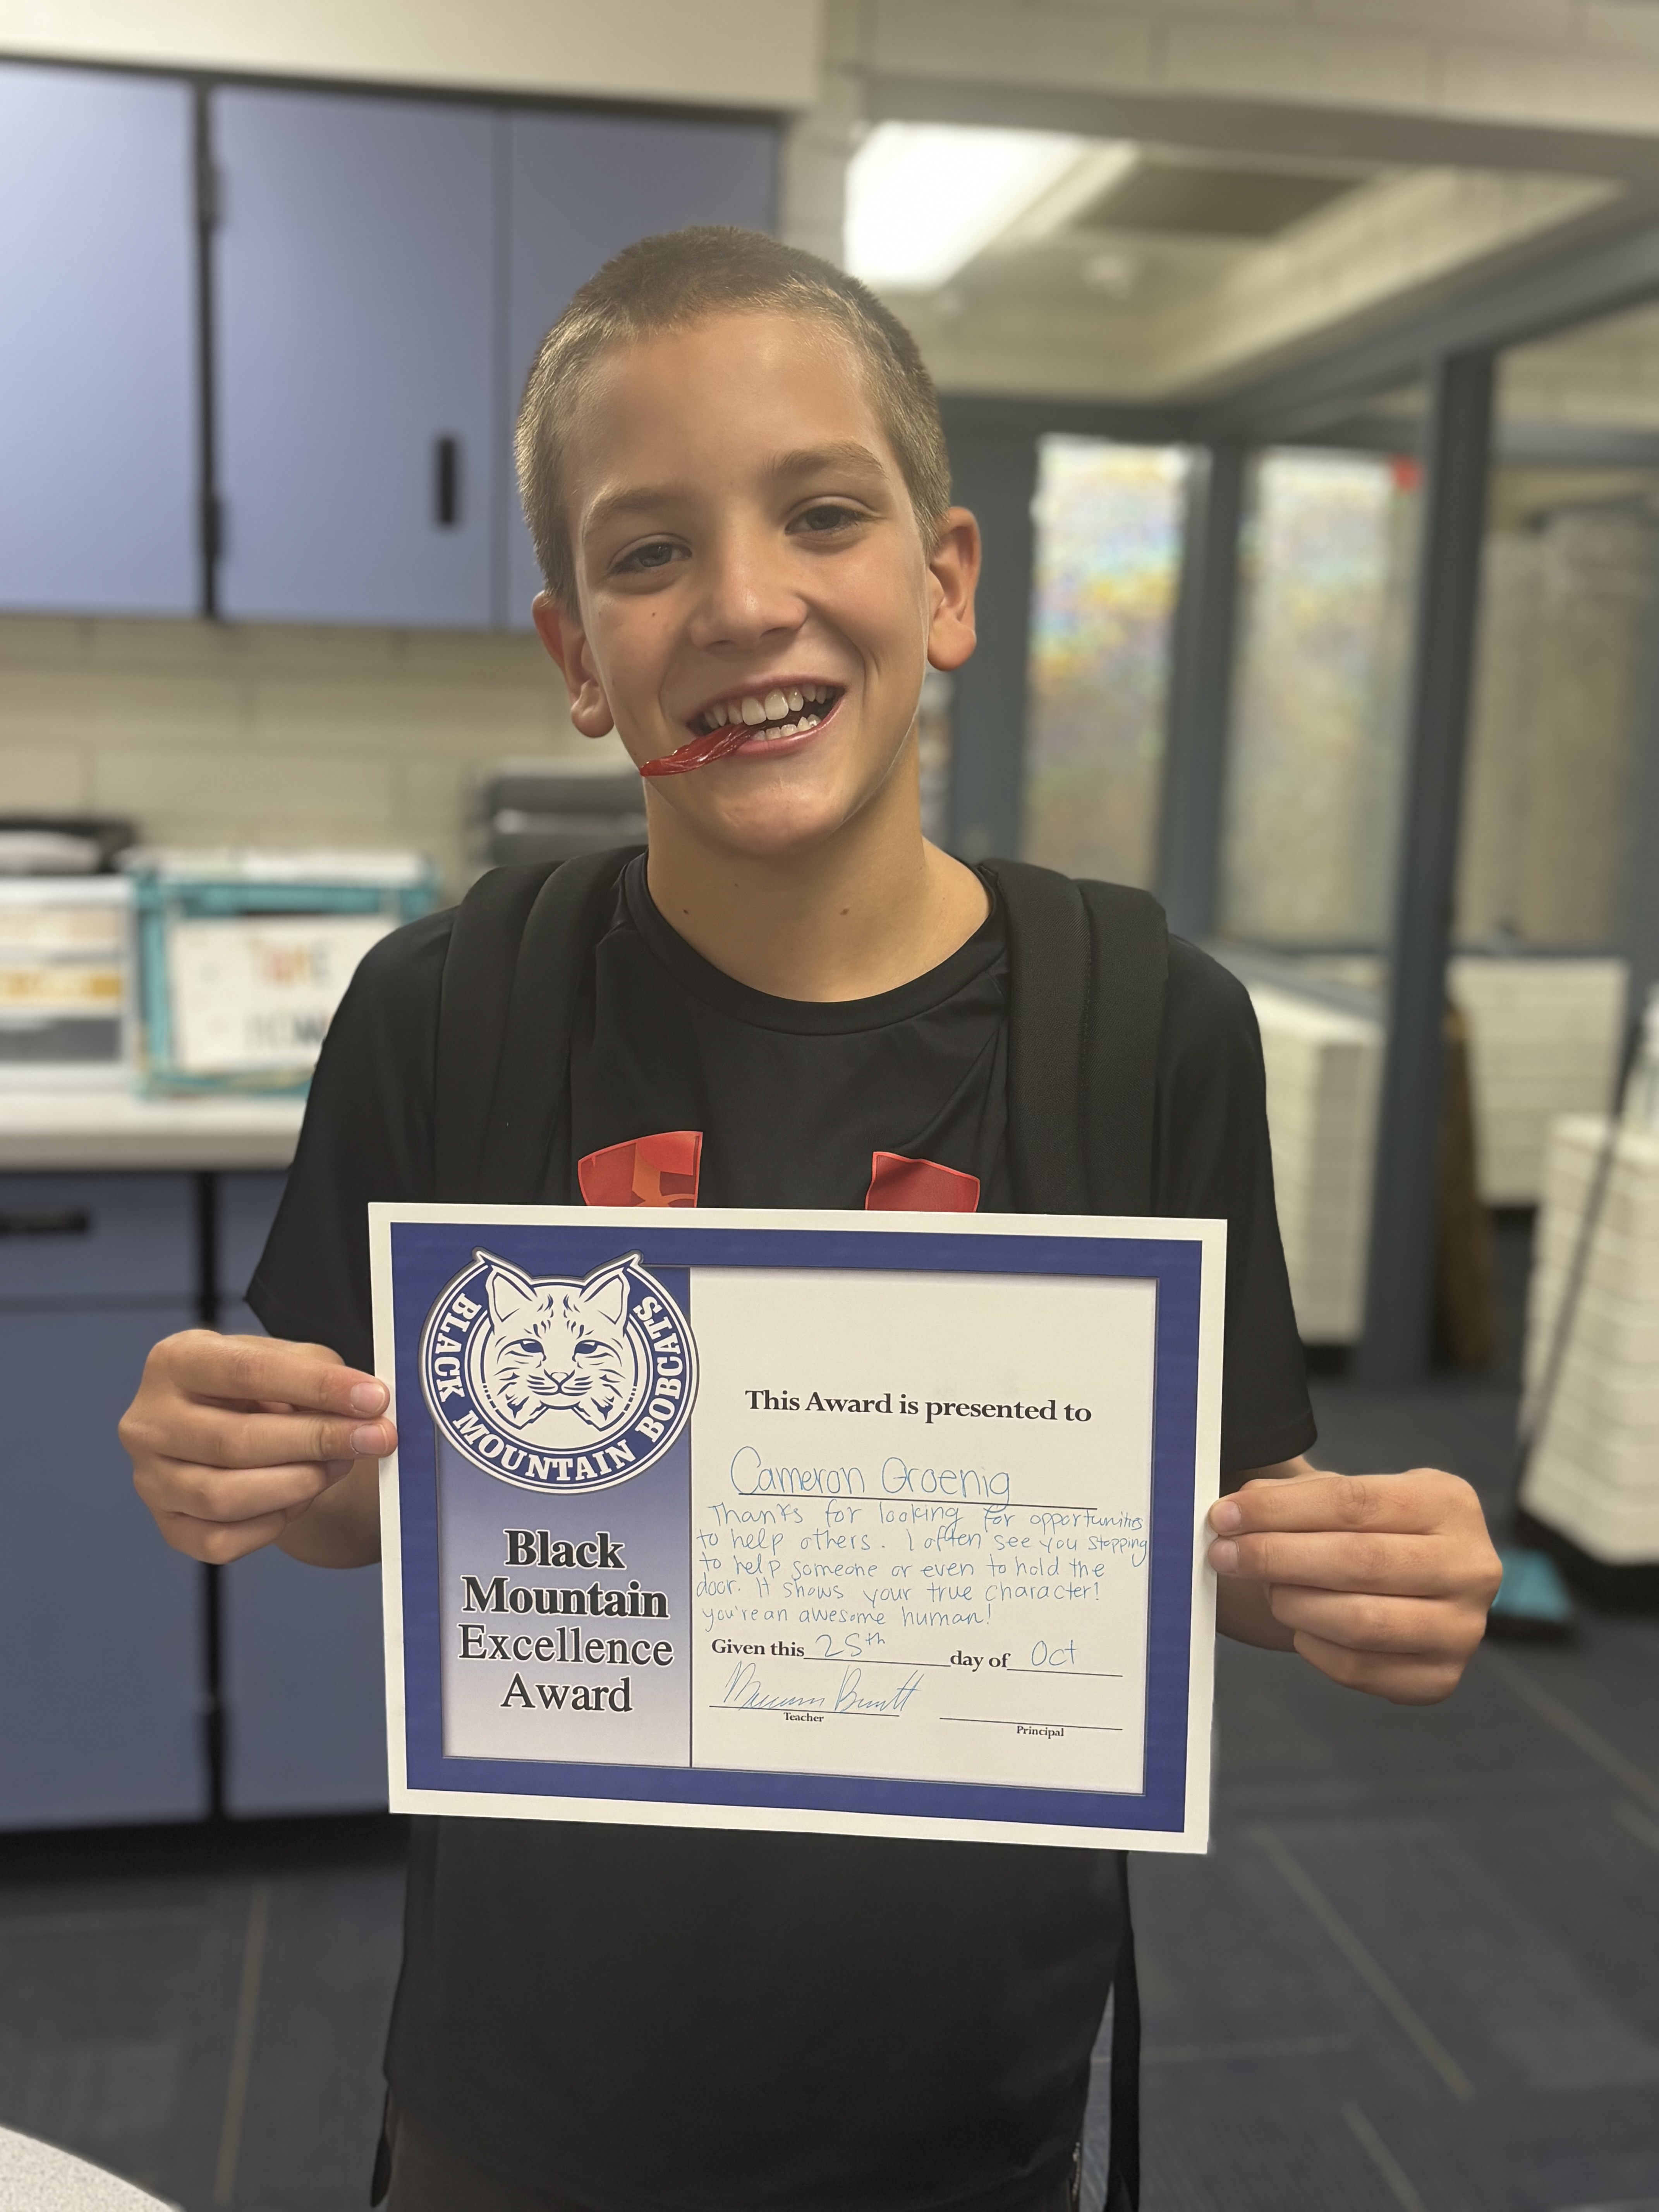 TAKE
BLACK MOUNTAIN BOBCATS
Black
Mountain
Excellence
Award
This Award is presented to
Cameron Groenig
Thanks for looking for opportunities
to help others. I often see you stopping
to help someone or even to hold the
door. It shows your true character!
you're an awesome human!
Given this 25th day of Oct
Teacher
Principal